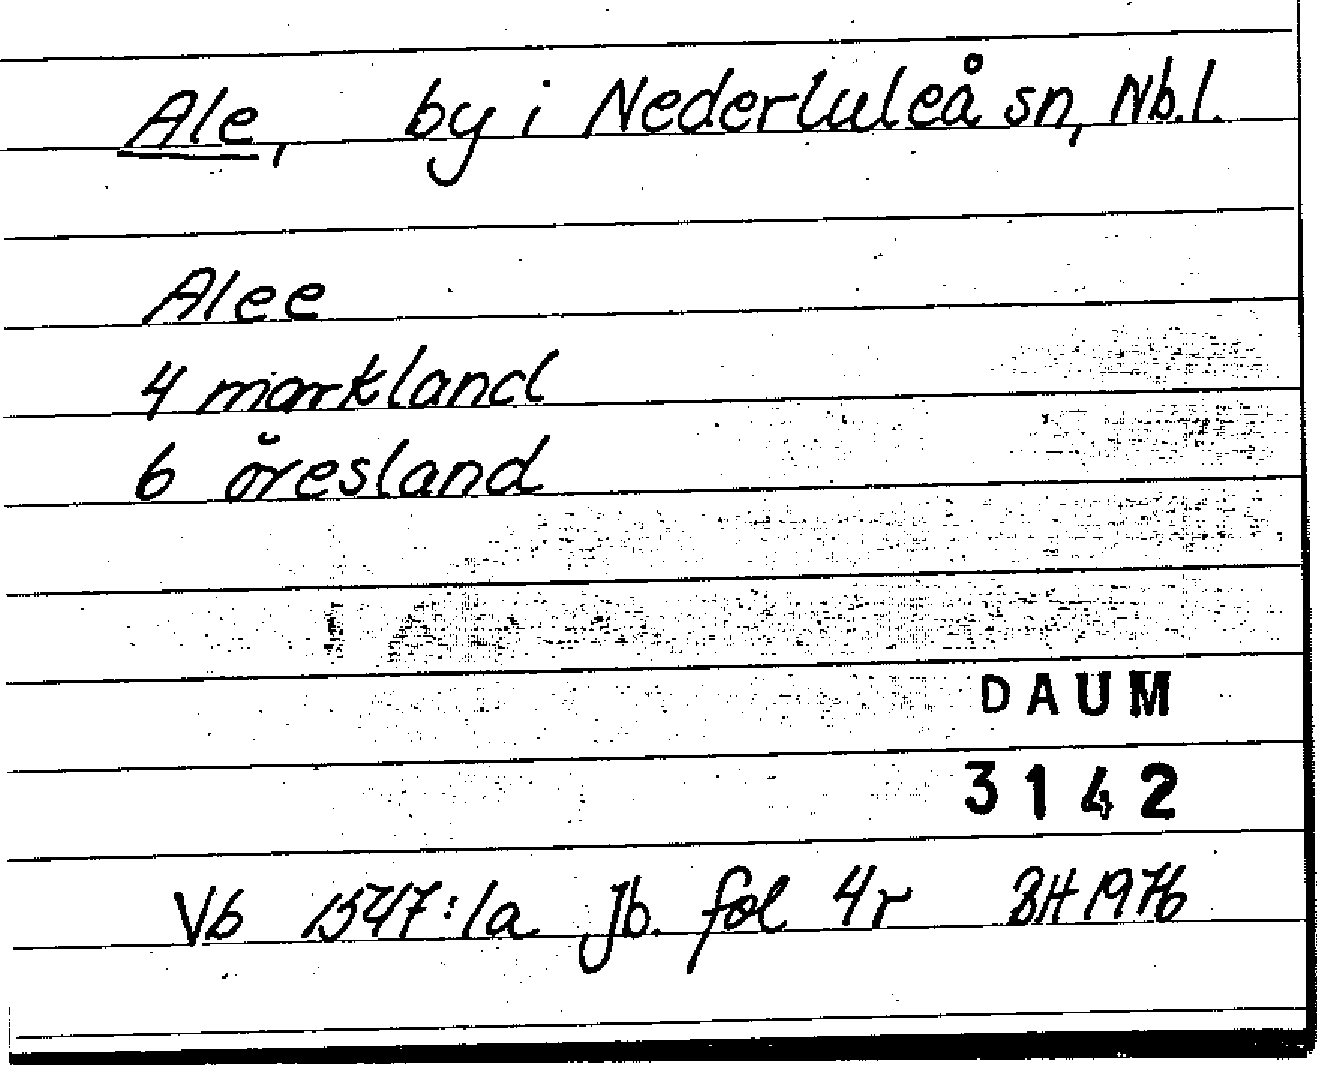 Ale, by i Nederluleå sn, Nb.l.
Alee
4 markland
6 öresland
DAUM
3142
Vb 1547:1a Jb. fol 4r BH 1976